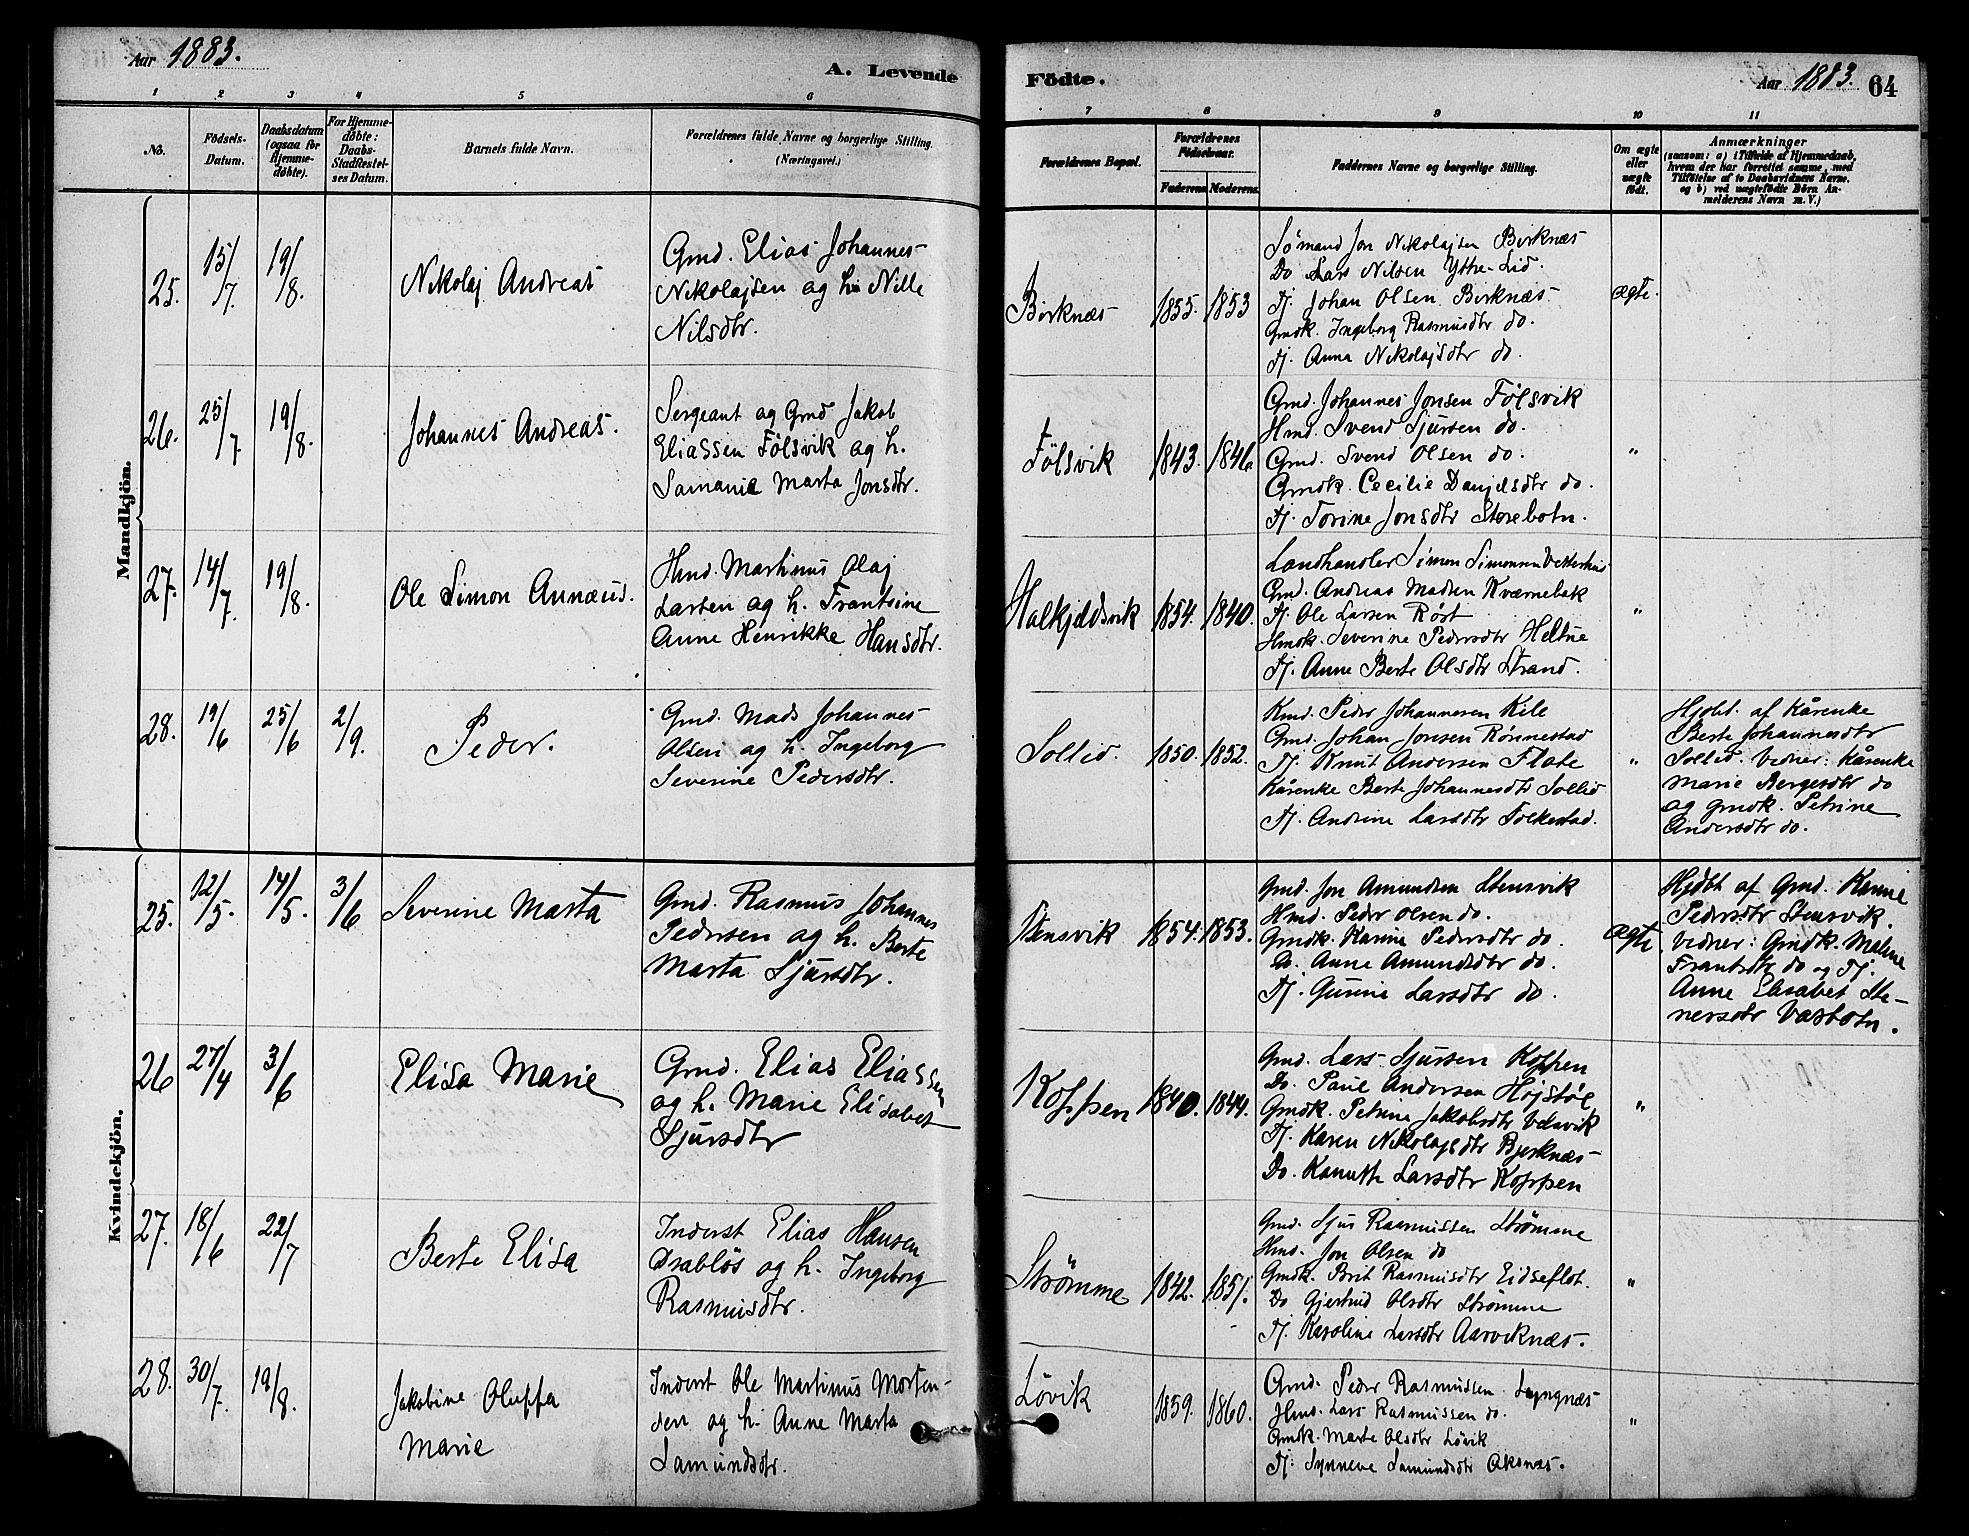 Aar 1883.
A. Levende Födte.
Aar 1883.
64
1 2 3 4 5 6 7 8 9 10 11
No.
Födsels-
Datum.
Daabsdatum
(ogsaa for
Hjemme-
döbte).
For Hjemme-
døbte:
Daabs-
Stadfæstel-
ses Datum.
Barnets fulde Navn.
Forældrenes fulde Navne og borgerlige Stilling.
(Næringsvei.)
Forældrenes Bopæl.
Forældrenes
Födselsaar.
Faderens.
Moderens.
Faddernes Navne og borgerlige Stilling.
Om ægte
eller
uægte
født.
Anmærkninger
(saasom: a) i Tilfælde af Hjemmedaab,
hvem der har forrettet samme, med
Tilføielse af to Daabsvidners Navne.
og b) ved uægtefødte Börn An-
melderens Navn m. V.)
Mandkjön.
25.
15/7
19/8.
Nikolaj Andreas
Gmd. Elias Johannes
Nikolajsen og h. Nille
Nilsdtr.
Birknæs
1855.
1853
Sømand Jon Nikolajsen Birknæs
Do Lars Nilsen Ytre-Lid.
Tj. Johan Olsen Birknæs
Gmdk. Ingeborg Rasmusdtr do.
Tj. Anna Nikolajsdtr do.
ægte.
26.
25/7
19/8.
Johannes Andreas.
Sergeant og Gmd Jakob
Eliassen Følsvik og h.
Samanie Marta Jonsdtr.
Følsvik
1843.
1846
Gmd. Johannes Jonsen Følsvik
Hmd. Svend Sjursen do.
Gmd. Svend Olsen do.
Gmdk. Cecilie Danjelsdtr do.
Tj. Torine Jonsdtr Storebotn.
"
27.
14/7.
19/8.
Ole Simon Annæus.
Hmd. Martinus Olaj
Larsen og h. Frantsine
Anne Henrikke Hansdtr.
Halkjeldsvik
1854.
1840.
Landhandler Simon Simonsen
Gmd. Andreas Madsen Kværnebak
Tj. Ole Larsen Røst
Hmdk. Severine Pedersdtr Heltne
Tj. Anne Berte Olsdtr Strand.
"
28.
19/6
25/6
2/9.
Peder.
Gmd. Mads Johannes
Olsen og h. Ingeborg
Severine Pedersdtr.
Sollid.
1850.
1852.
Kmd. Peder Johannesen Kile
Gmd. Johan Jonsen Rönnestad
Tj. Knut Andersen Flate
Kårenke Berte Johannesdtr Sollid
Tj. Andrine Larsdtr Folkestad.
"
Hjdbt. af Kårenke
Berte Johannesdtr
Sollid. Vidner: Kårenke
Marie Bergesdtr do
og Gmdk. Petrine
Andersdtr do.
Kvindekjön.
25.
12/5.
14/5.
3/6
Severine Marta
Gmd. Rasmus Johannes
Pedersen og h. Berte
Marta Sjursdtr.
Stensvik
1854.
1853.
Gmd. Jon Amundsen Stensvik
Hmd. Peder Olsen do.
Gmdk. Karine Pedersdtr do.
Do. Anne Amundsdtr do.
Tj. Gurine Larsdtr do.
ægte
Hjdbt af Gmd. Karine
Pedersdtr Stensvik.
Vidner: Gmdk. Maline
Frantsdtr do og Tj.
Anne Elisabet Ste-
nersdtr Vasbotn.
26
27/4
3/6
Elisa Marie
Gmd. Elias Eliassen
og h. Marie Elisabet
Sjursdtr
Koppen
1840.
1844.
Gmd. Lars Sjursen Koppen
Do. Paul Andersen Højstøl
Gmdk. Petrine Jakobsdtr Velsvik
Tj. Karen Nikolajsdtr Bjerknæs
Do. Larsdtr Koppen
"
27.
18/6
22/7
Berte Elisa
Inderst Elias Hansen
Drabløs og h. Ingeborg
Rasmusdtr.
Strömme
1842.
1851.
Gmd. Sjur Rasmussen Strömme
Hmd. Jon Olsen do
Gmdk. Brit Rasmusdtr Eidseflot.
Do Gjertrud Olsdtr Strömme
Tj. Karoline Larsdtr Aarviknæs.
"
28.
30/7.
19/8.
Jakobine Oluffa
Marie
Inderst Ole Martinus Morten-
sen og h. Anne Marta
Samundsdtr.
Lövik
1859.
1860.
Gmd. Peder Rasmussen Lyngnæs
Hmd. Lars Rasmussen do.
Gmdk. Marte Olsdtr Lövik
Tj. Synneve Samundsdtr Aksnæs.
"